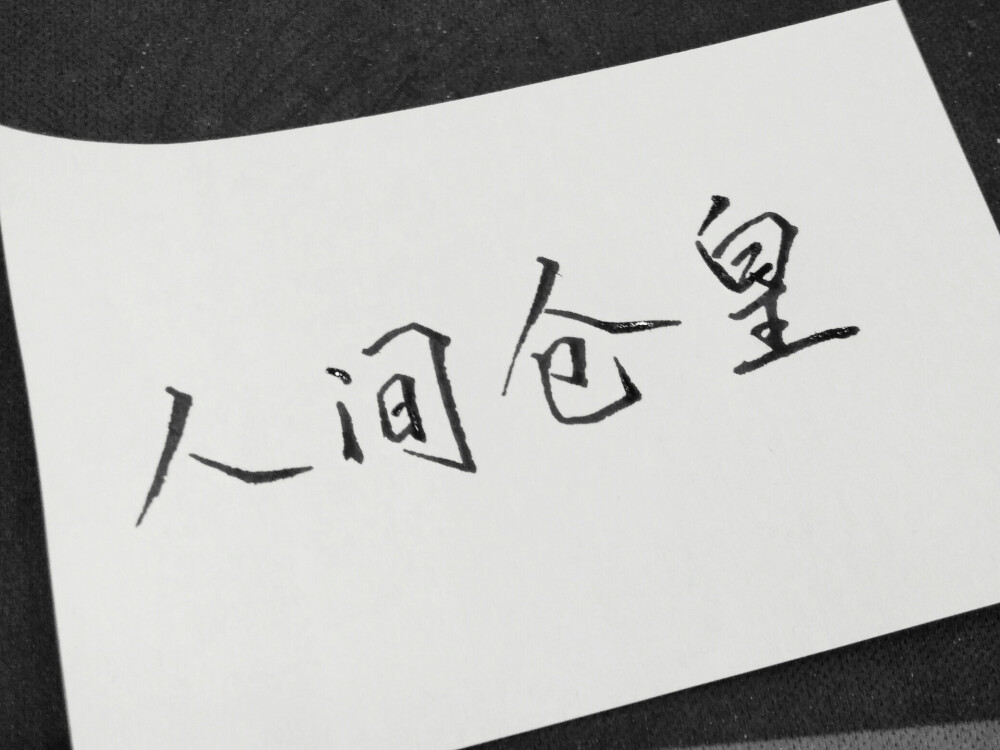 人间仓皇